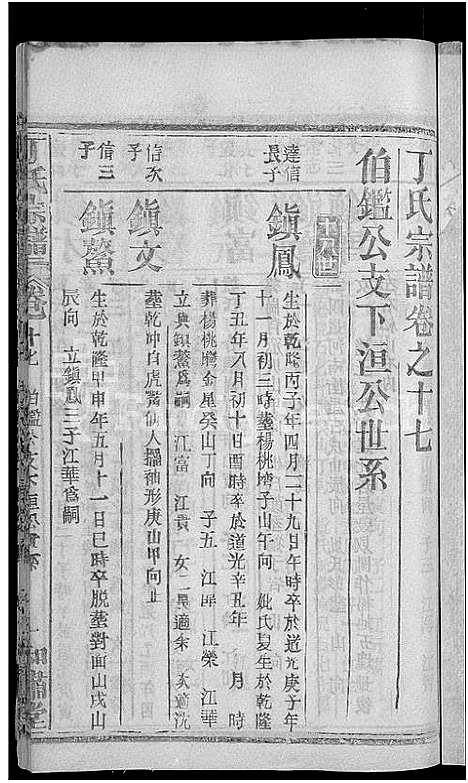 丁氏宗譜卷之十七
伯鑑公支下洹公世系
十八世
達信長子
鎮鳳
生於乾隆丙子年四月二十九日午時卒於道光庚子年
十一月初三時墓楊桃塆子山午向 妣氏夏生於乾隆
丁丑年八月初十日酉時卒於道光辛丑年 月 時
葬楊桃塆金星癸山丁向 子五 江 江榮 江華
立與鎮鰲爲嗣 江富 江貴 女二 長適余 次適沈
信次子
鎮文
墓乾冲白虎嘴仙人摺袖形庚山甲向止
信三子
鎮鰲
生於乾隆甲申年五月十一日巳時卒脱墓對面山戌山
辰向 立鎮鳳三子江華爲嗣
丁氏宗譜
卷十七 伯鑑公支下洹公世系